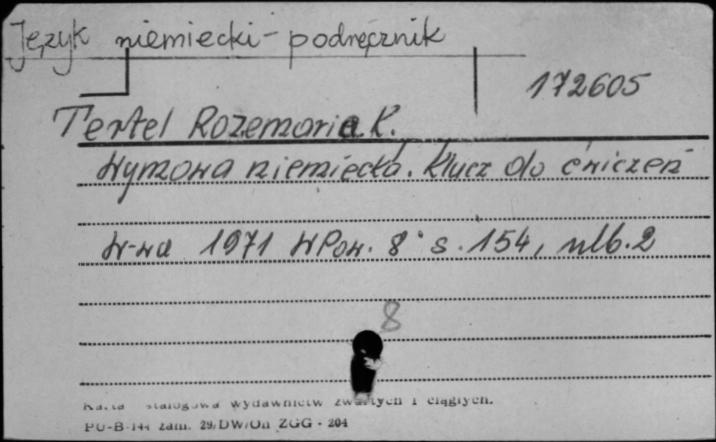 Język niemiecki - podręcznik
172605
Tertel Rozemaria K.
Wymowa niemiecka. Klucz do ćwiczeń
W-wa 1971 WPow. 8° s. 154, nlb. 2
8
Karta katalogowa wydawnictw zwartych i ciągłych.
PU-B-144 zam. 29/DW/On ZGG - 204